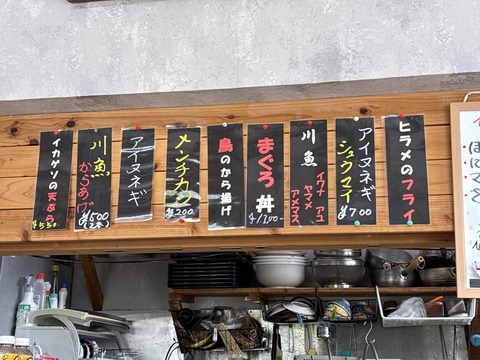 ヒラメのフライ
アイヌネギ
シュウマイ
¥700
川魚
イワナ アユ
ヤマメ
アメマス
まぐろ丼
鳥のから揚げ
メンチカツ
¥200
アイヌネギ
川魚
からあげ
¥500
イカゲソの天ぷら
¥550